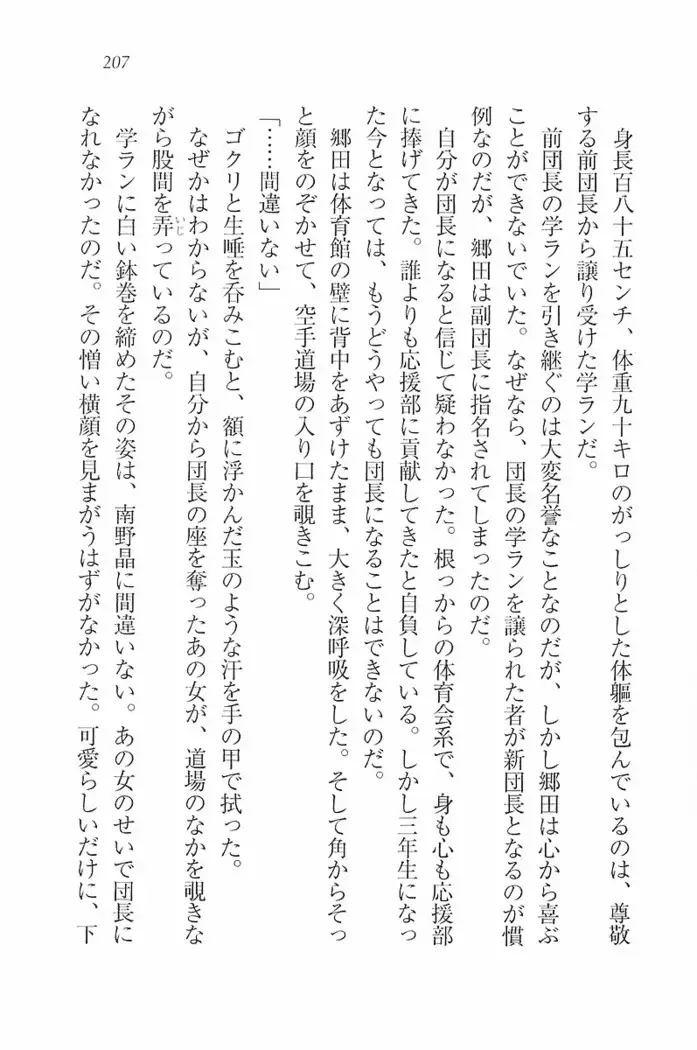 207
身長百八十五センチ、体重九十キロのがっしりとした体軀を包んでいるのは、尊敬
する前団長から譲り受けた学ランだ。
前団長の学ランを引き継ぐのは大変名誉なことなのだが、しかし郷田は心から喜ぶ
ことができないでいた。なぜなら、団長の学ランを譲られた者が新団長となるのが慣
例なのだが、郷田は副団長に指名されてしまったのだ。
自分が団長になると信じて疑わなかった。根っからの体育会系で、身も心も応援部
に捧げてきた。誰よりも応援部に貢献してきたと自負している。しかし三年生になっ
た今となっては、もうどうやっても団長になることはできないのだ。
郷田は体育館の壁に背中をあずけたまま、大きく深呼吸をした。そして角からそっ
と顔をのぞかせて、空手道場の入り口を覗きこむ。
「……間違いない」
ゴクリと生唾を呑みこむと、額に浮かんだ玉のような汗を手の甲で拭った。
なぜかはわからないが、自分から団長の座を奪ったあの女が、道場のなかを覗きな
がら股間を弄いじっているのだ。
学ランに白い鉢巻を締めたその姿は、南野晶に間違いない。あの女のせいで団長に
なれなかったのだ。その憎い横顔を見まがうはずがなかった。可愛らしいだけに、下